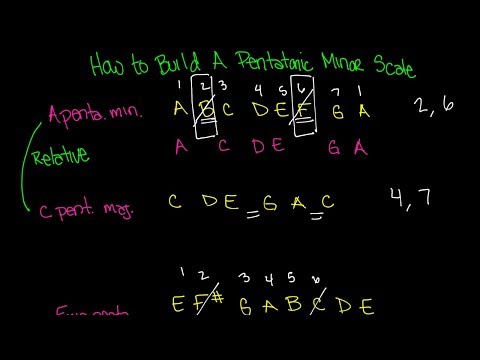 How to Build A Pentatonic Minor Scale
1 2 3 4 5 6 7 1
A penta. min. A B C D E F G A 2, 6
Relative A C D E G A
C pent. maj. C D E G A C 4, 7
1 2 3 4 5 6
E F# G A B C D E